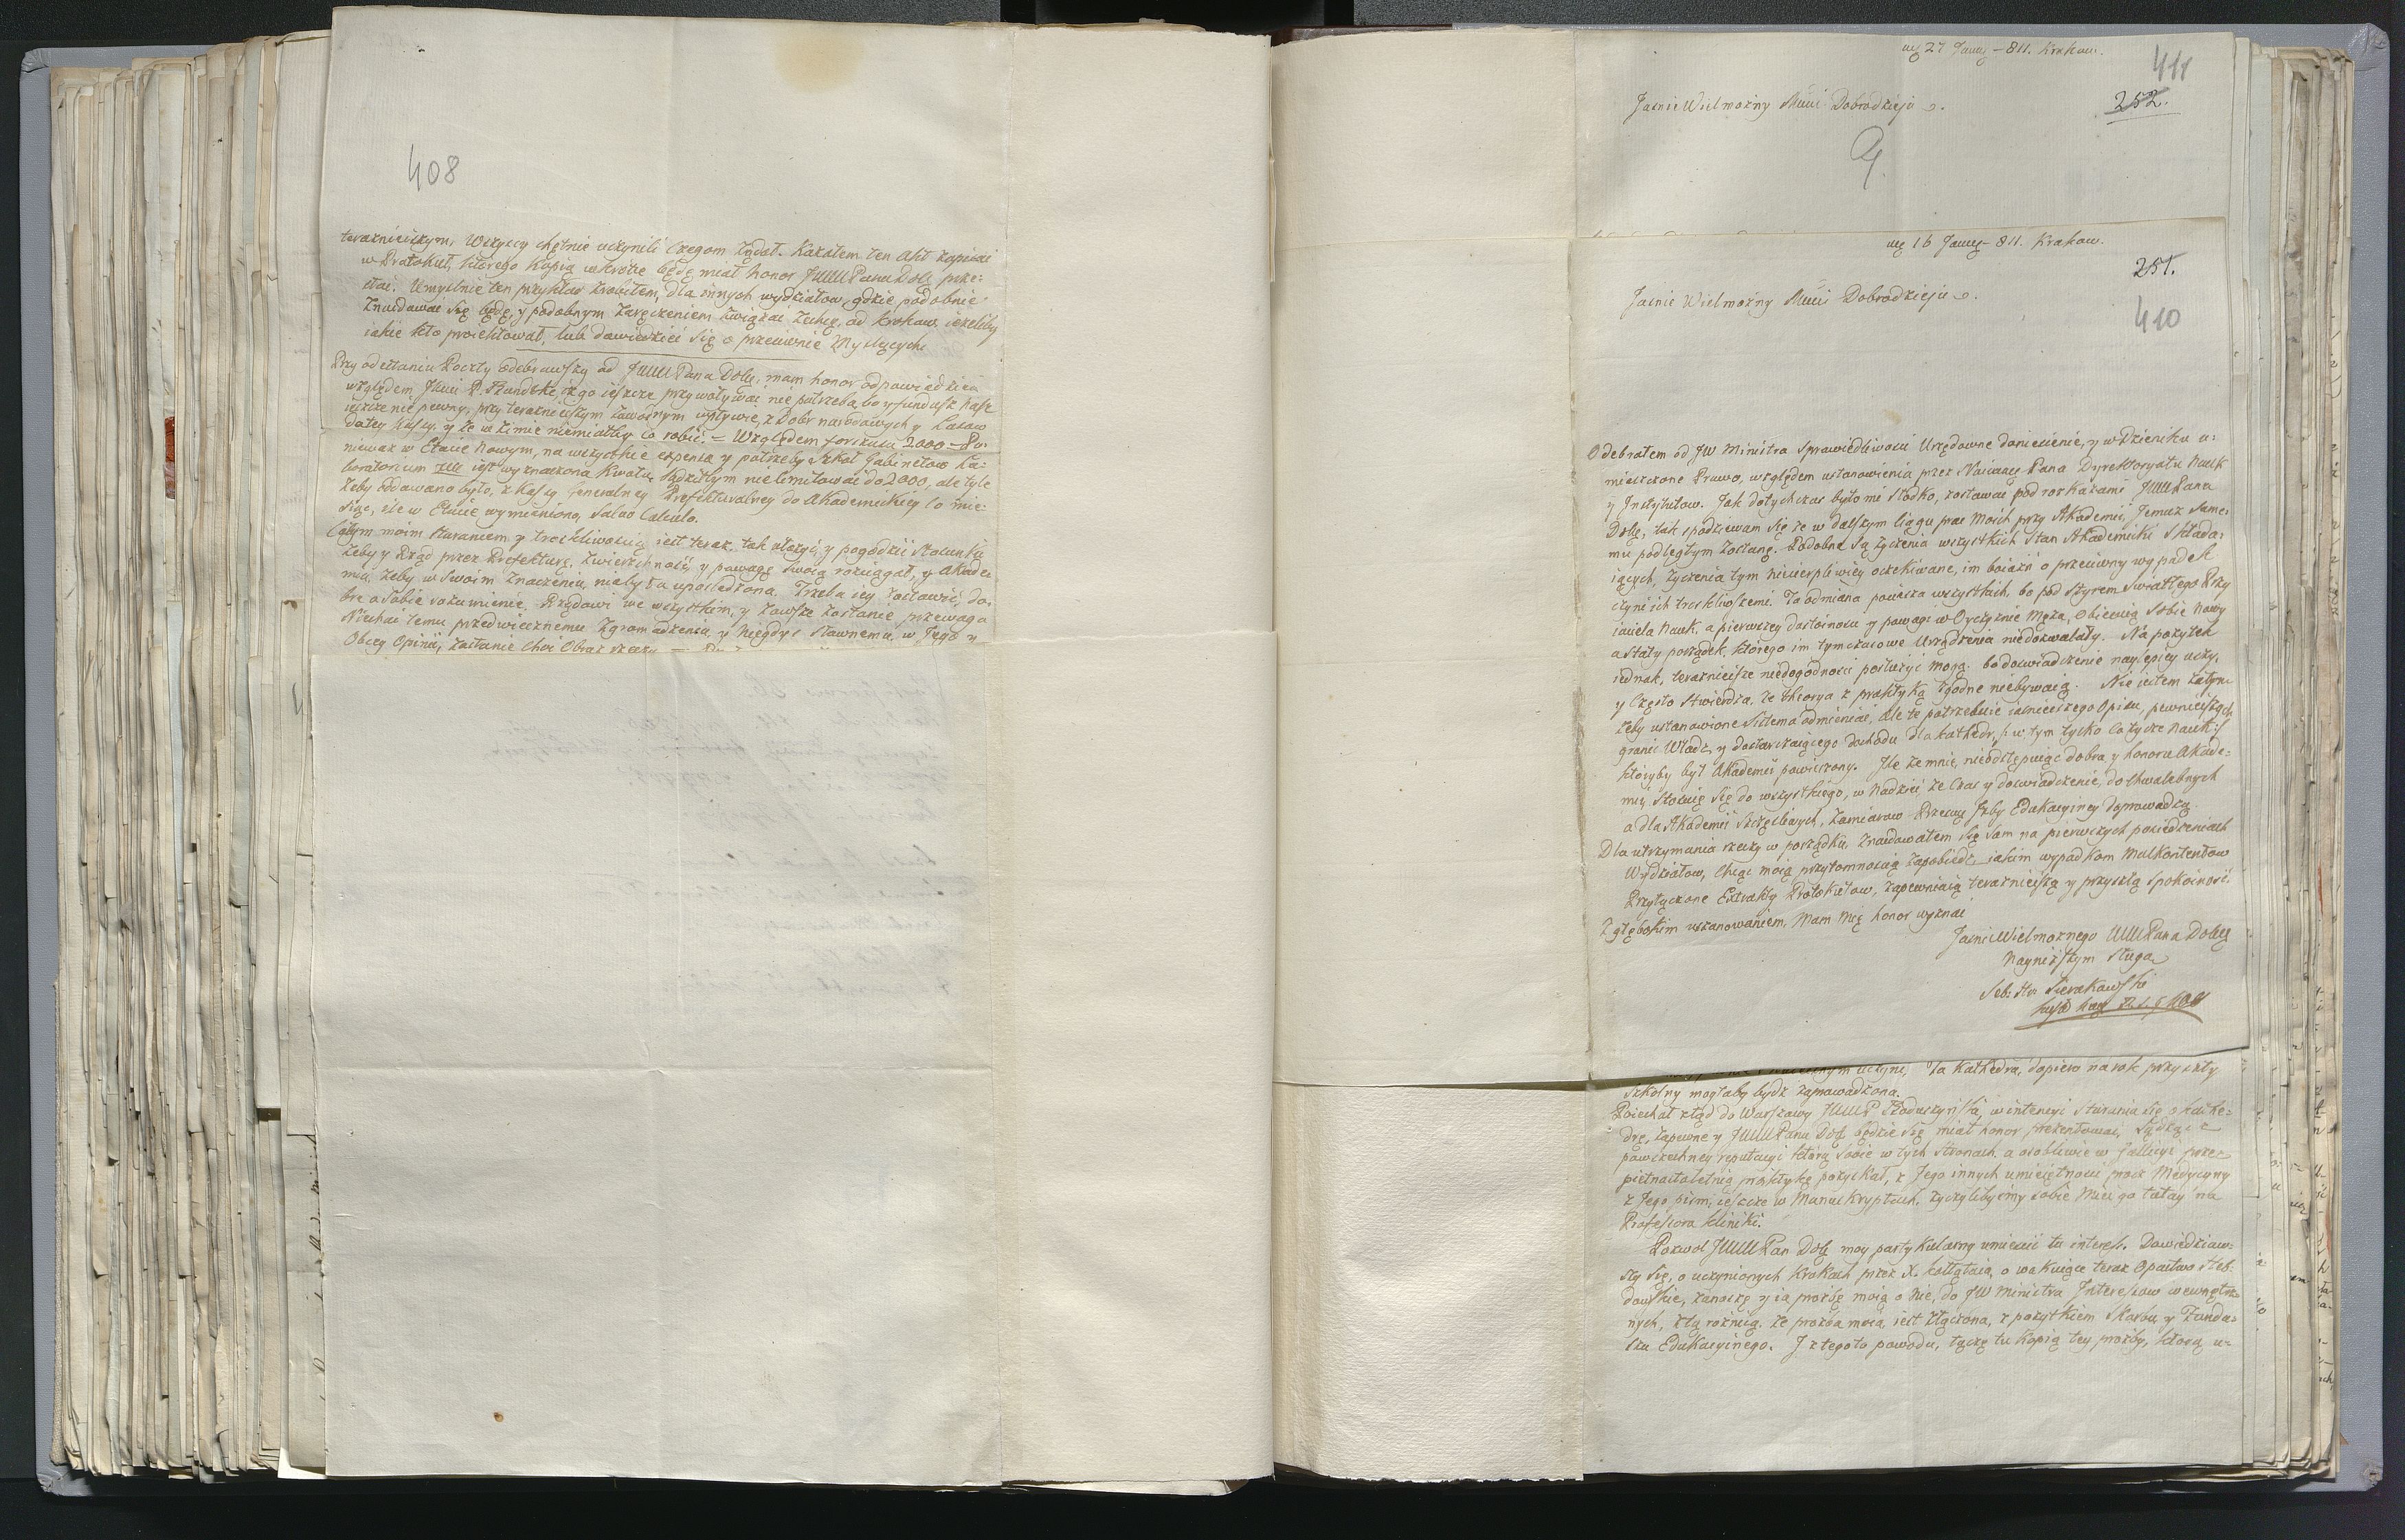 408
teraznieiszym, Wszyscy chętnie uczynili czegom żądał. Kazałem ten Akt zapisać
w Protokuł, którego kopią wkrótce będę miał honor JWW Panu Dob. prze:
słać. Umyślnie ten przykład zrobiłem, dla innych wydziałow, gdzie podobnie
znaidować się będę, y podobnym zaręczeniem związać zechcę, od krokow, ieżeliby
iakie kto proiektował, lub dowiedzieć się o przeciwnie Myslących.
Przy odesłaniu Poczty odebrawszy od JWW Pana Dob., mam honor odpowiedzieć
względem Jmci P. , iż go ieszcze przywoływać nie potrzeba, bo y fundusz nasz
ieszcze nie pewny, przy teraznieiszym zawodnym wpływie, z Dobr narodowych y Lasow
datey kassy, y że w zimie niemiałby co robić. – Względem forszusu 2000 – Po:
nieważ w Etacie Nowym, na wszystkie expensa y potrzeby Szkoł Gabinetow La:
boratorium iest wyznaczona kwota, sądziłbym nielimitować do 2000, ale tyle
żeby oddawano było, z Kassy Generalney Prefekturalney do Akademickiey co mie:
siąc, ile w Etacie wymieniono, Salvo Calculo.
Całym moim staraniem y troskliwością iest teraz, tak ułożyć y pogodzić stosunki
żeby y Rząd przez Prefekturę, zwierzchność y powagę swoią rozciągał, y Akade:
mia, żeby w swoim znaczeniu, niebyła upośledzona. Trzeba iey zostawić, do:
bre o sobie rozumienie. Rządowi we wszystkim, y zawsze zostanie przewaga
Niechai temu przedwiecznemu Zgromadzeniu, y niegdyś sławnemu, w Jego y
Obcey Opinii, zostanie choć Obraz rzeczy –
27 – 811. Krakow.
411
Jaśnie Wielmożny Mości Dobrodzieju.
252.
16 – 811. Krakow.
251.
Jaśnie Wielmożny Mości Dobrodzieju.
410
Odebrałem od JW Ministra Sprawiedliwości Urzędowne doniesienie, y w Dzieniku u:
mieszczone Prawo, względem ustanowienia przez Nayiaś: Pana Dyrektoryatu Nauk
y Instytutow. Jak dotychczas było mi słodko, zostawać pod rozkazami JWW Pana
Dob., tak spodziewam się że w dalszym ciągu prac Moich przy Akademii, Jemuż same:
mu podległym zostanę. Podobne są życzenia wszystkich Stan Akademicki składa:
iących, życzenia tym niecierpliwiey oczekiwane, im boiaźń o przeciwny wypadek
czyni ich troskliwszemi. Ta odmiana pociesza wszystkich, bo pod styrem Swiatłego Przy
iaciela Nauk, a pierwszey dostoiności y powagi w Oyczyznie Męża, Obiecuią sobie Nowy
a stały porządek, którego im tymczasowe Urządzenia niedozwalały. Na pożytek
iednak, teraznieisze niedogodności posłużyć mogą: bo doświadczenie naylepiey uczy,
y często stwierdza, że theorya z praktyką zgodne niebywaią. Nie iestem zatym
żeby ustanowione Sistema odmieniać, ale te potrzebuie iaśnieiszego Opisu, pewnieiszych
granic Władz, y dostarczaiącego dochodu dla kathedr, /: w tym tylko co tycze Nauk :/
któryby był Akademii powierzony. Ile ze mnie, nieodstępuiąc dobra, y honoru Akade:
mii, stosuię się do wszystkiego, w Nadziei, że czas y doświadczenie, do chwalebnych
a dla Akademii szczęśliwych, zamiarow Przesw: Izby Edukacyiney doprowadzą.
Dla utrzymania rzeczy w porządku, znaidowałem się sam na pierwszych posiedzeniach
Wydziałow, chcąc moią przytomnością zapobiedz iakim wypadkom Malkontentow
Przyłączone Extrakty Protokułow, zapewniaią teraznieiszą y przyszłą spokoiność.
Z głębokim uszanowaniem, Mam mię honor wyznać
Jaśnie Wielmożnego WMMPana Dobry
Nayniższym sługą
Seb: Hr Sierakowski
Ta Kathedra, dopiero na rok przyszły
szkolny mogłaby bydź zaprowadzona.
Poiechał ztąd do Warszawy JWW P , w intencyi starania się o kathe:
drę, zapewne y JWW Panu Dob. będzie się miał honor prezentować, sądząc z
powszechney reputacyi którą sobie w tych stronach, a osobliwie w Gallicyi przez
piętnastoletnią praktykę pozyskał, z Jego innych umieiętności procz Medycyny
z Jego pism, ieszcze w Manuskryptach. życzylibyśmy sobie mieć go tutay na
Professora kliniki.
Pozwol JWW Pan Dob. moy partykularny umieścić tu interess. Dowiedziaw:
szy się, o uczynionych krokach przez X. Kołłątaia, o wakuiące teraz Opactwo Heb:
dowskie, zanoszę y ia prożbę moią o nie, do JW Ministra Interessow wewnętrz:
nych, z tą rożnicą, że prożba moia iest złączona, z pożytkiem Skarbu y Fundu:
szu Edukacyinego. I z tego to powodu, łączę tu kopią tey prożby, którą u: